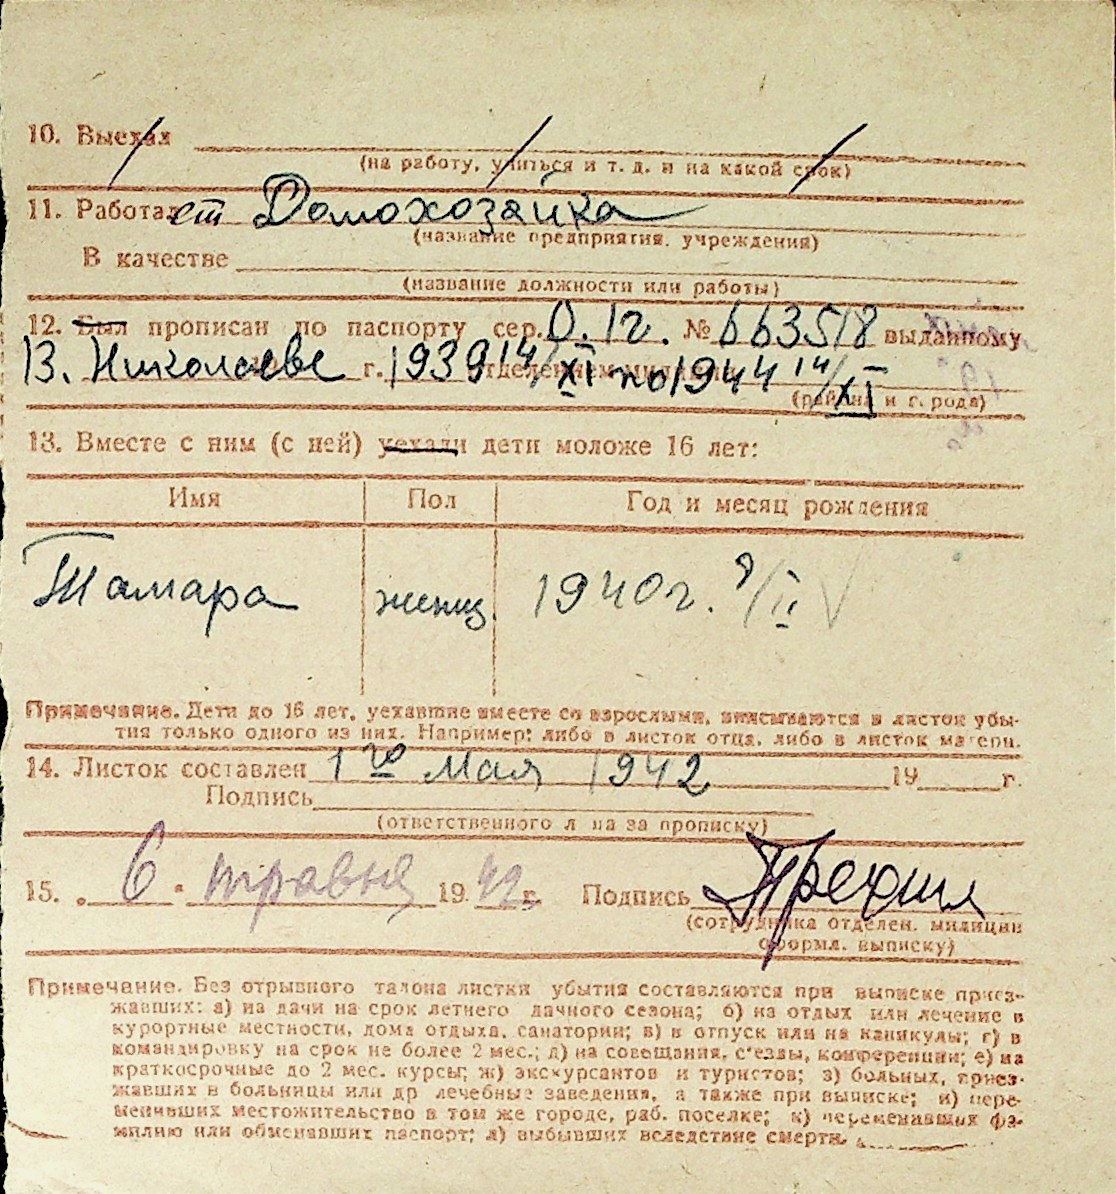 10. Выехал
(на работу, учиться и т. д. и на какой срок)
11. Работает Домохозайка
(название предприятия, учреждения)
В качестве
(название должности или работы)
12. Был прописан по паспорту сер. 0.1г. № 663518 выданному
В. Николаеве г. 1939 14/XI отделением милиции по 1944 14/XI
(района и города)
13. Вместе с ним (с ней) уехали дети моложе 16 лет:
Имя Пол Год и месяц рождения
Тамара женщ. 1940г. 9/II
Примечание. Дети до 16 лет, уехавшие вместе со взрослыми, вписываются в листок убы-
тия только одного из них. Например: либо в листок отца, либо в листок матери.
14. Листок составлен 1го Мая 1942 19 г.
Подпись
(ответственного лица за прописку)
15. 6 травня 1942 г. Подпись
(сотрудника отделен. милиции
оформл. выписку)
Примечание. Без отрывного талона листки убытия составляются при выписке приез-
жавших: а) на дачи на срок летнего дачного сезона; б) на отдых или лечение в
курортные местности, дома отдыха, санатории; в) в отпуск или на каникулы; г) в
командировку на срок не более 2 мес.; д) на совещания, с'езды, конференции; е) на
краткосрочные до 2 мес. курсы; ж) экскурсантов и туристов; з) больных, приез-
жавших в больницы или др лечебные заведения, а также при выписке; и) пере-
менивших местожительство в том же городе, раб. поселке; к) переменивших фа-
милию или обменявших паспорт; л) выбывших вследствие смерти.